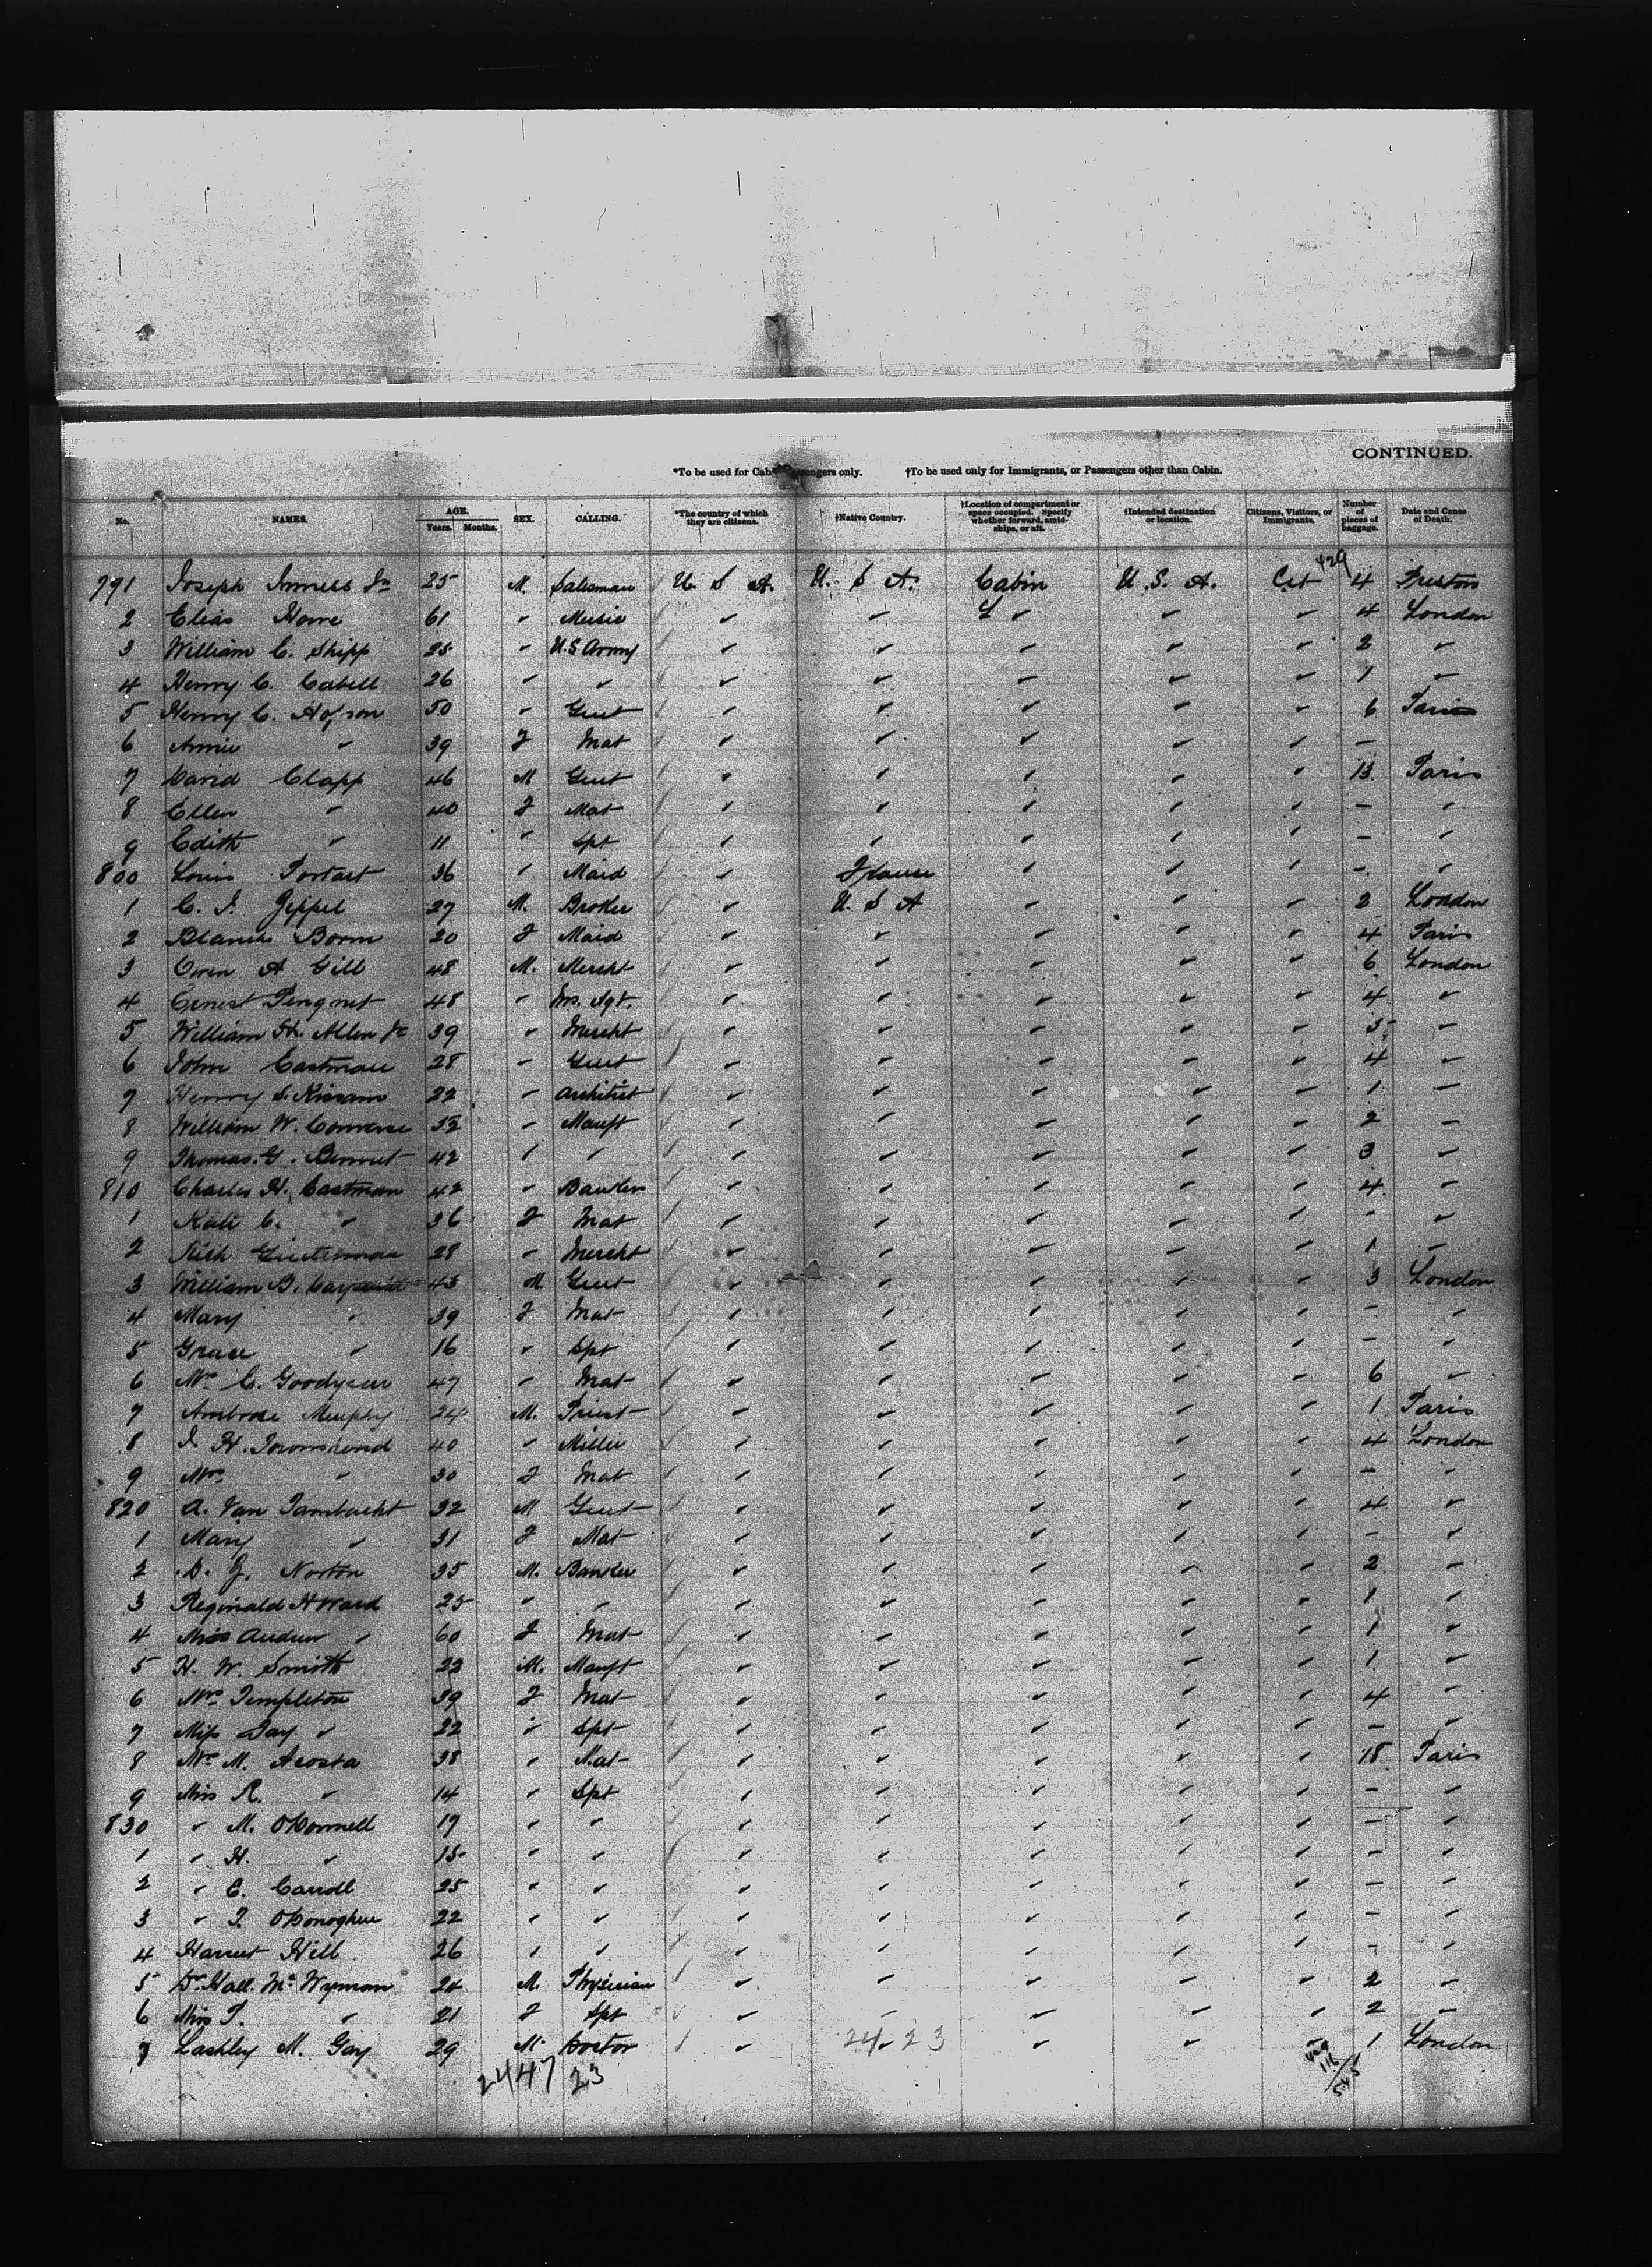 CONTINUED.
*To be used for Cab Passengers only. †To be used only for Immigrants, or Passengers other than Cabin.
No. NAMES. AGE. Years. Months. SEX. CALLING. *The country of which they are citizens. †Native Country. †Location of compartment or space occupied. Specify whether forward, amidships, or aft. †Intended destination or location. Citizens, Visitors, or Immigrants. Number of pieces of baggage. Date and Cause of Death.
429
791 Joseph Inness Jr 25 M. Salesman U. S A. U. S A. Cabin U. S. A. Cit 4 Preston
2 Elias Howe 61 " Music " " " " 4 London
3 William C. Shipp 25 " U.S Army " " " " " 2 "
4 Henry C. Cabell 26 " " " " " " " 1 "
5 Henry C. 50 " Gent " " " " " 6 Paris
6 Annie " 39 F Mat " " " " " –
7 David Clapp 46 M Gent " " " " " 13. Paris
8 Ellen " 40 F Mat " " " " " – "
9 Edith " 11 " Spt " " " " " – "
800 Louis 36 " Maid " France " " " – "
1 C. J. 27 M. Broker " U. S A " " " 2 London
2 Blanche Borm 20 F Maid " " " " " 4 Paris
3 Owen A Gill 48 M. Mercht " " " " " 6 London
4 Ernest 48 " Ins. Agt. " " " " " 4 "
5 William H. Allen Jr 39 " Mercht " " " " " 3 "
6 John Eastman 28 " Gent " " " " " 4 "
7 Henry S. Kissam 22 " Architect " " " " " 1 "
8 William W. Converse 52 " Manft " " " " " 2 "
9 Thomas. G. Bennet 42 " " " " " " " 3 "
810 Charles H. Eastman 42 " Banker " " " " " 4 "
1 Kate C. " 36 F Mat " " " " " – "
2 28 " Mercht " " " " " 1 "
3 William B. 43 M Gent " " " " " 3 London
4 Mary " 39 F Mat " " " " " – "
5 Grace " 16 " Spt " " " " " – "
6 Mrs C. Goodyear 47 " Mat " " " " " 6 "
7 Ambrose Murphy 24 M. Priest " " " " " 1 Paris
8 J. H. Townshend 40 " Miller " " " " " 4 London
9 Mrs " 30 F Mat " " " " " – "
820 A. Van 32 M Gent " " " " " 4 "
1 Mary " 31 F Mat " " " " " – "
2 D. Z. Norton 35 M. Banker " " " " " 2 "
3 Reginald H Ward 25 " " " " " " " 1 "
4 Miss Andrew " 60 F Mat " " " " " 1 "
5 H. W. Smith 22 M. Manft " " " " " 1 "
6 Mrs Templeton 39 F Mat " " " " " 4 "
7 Miss Fay " 22 " Spt " " " " " – "
8 Mrs M. Acosta 38 " Mat " " " " " 18 Paris
9 Miss R. " 14 " Spt " " " " " – "
830 " M. ODonnell 17 " " " " " " " – "
1 " H. " 15 " " " " " " " – "
2 " E. Carroll 25 " " " " " " " – "
3 " T. ODonoghue 22 " " " " " " " – "
4 Harriet Hill 26 " " " " " " " – "
5 Dr. Hall. Mc Wyman 24 M. Physician " " " " " 2 "
6 Miss T. " 21 F Spt " " " " " 2 "
7 Lashley M. Gay 29 M. Doctor " 24 23 " " " 1 London
24 47 23
429
116
545